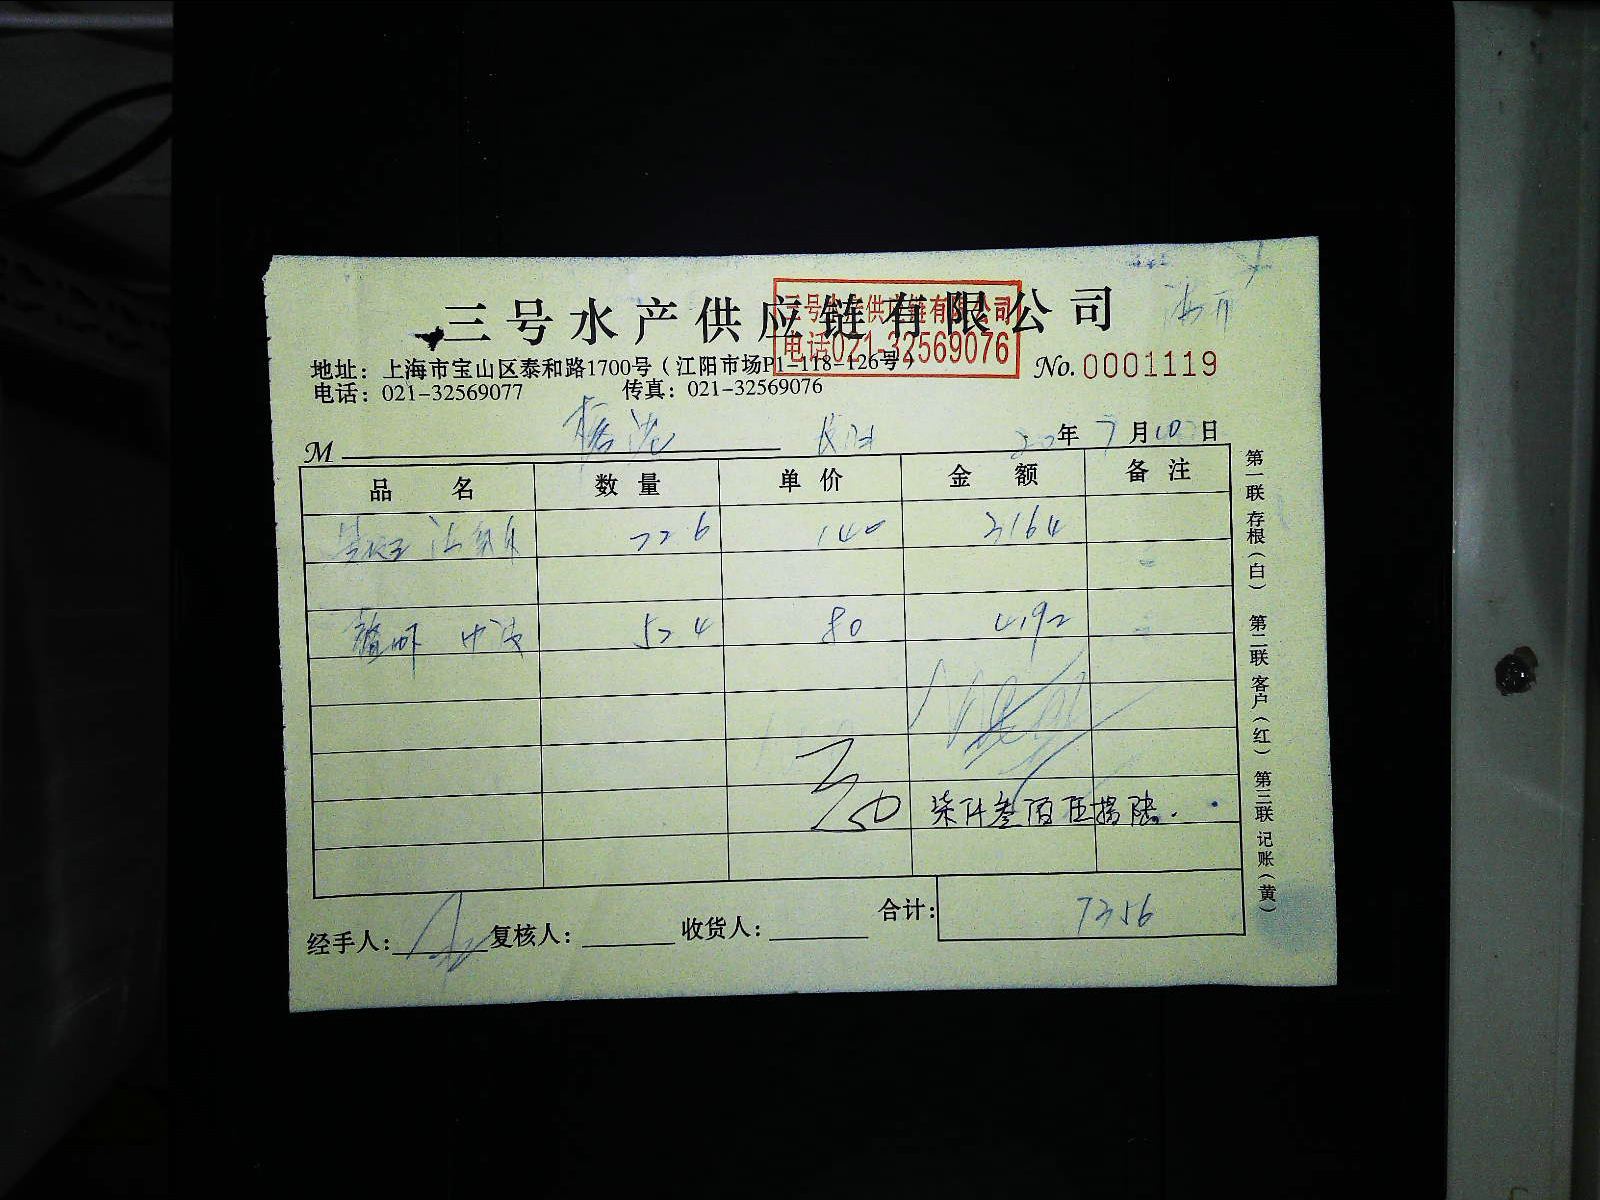 三号水产供应链有限公司
三号水产供应链有限公司
电话021-32569076
地址：上海市宝山区泰和路1700号（江阳市场P1-118-126号）
No.0001119
电话：021-32569077 传真：021-32569076
M
20年7月10日
品名 数量 单价 金额 备注
226 140 3164
中 524 80 4192
柒仟叁佰伍拾陆.
合计： 7356
经手人： 复核人： 收货人：
第一联存根（白） 第二联客户（红） 第三联记账（黄）